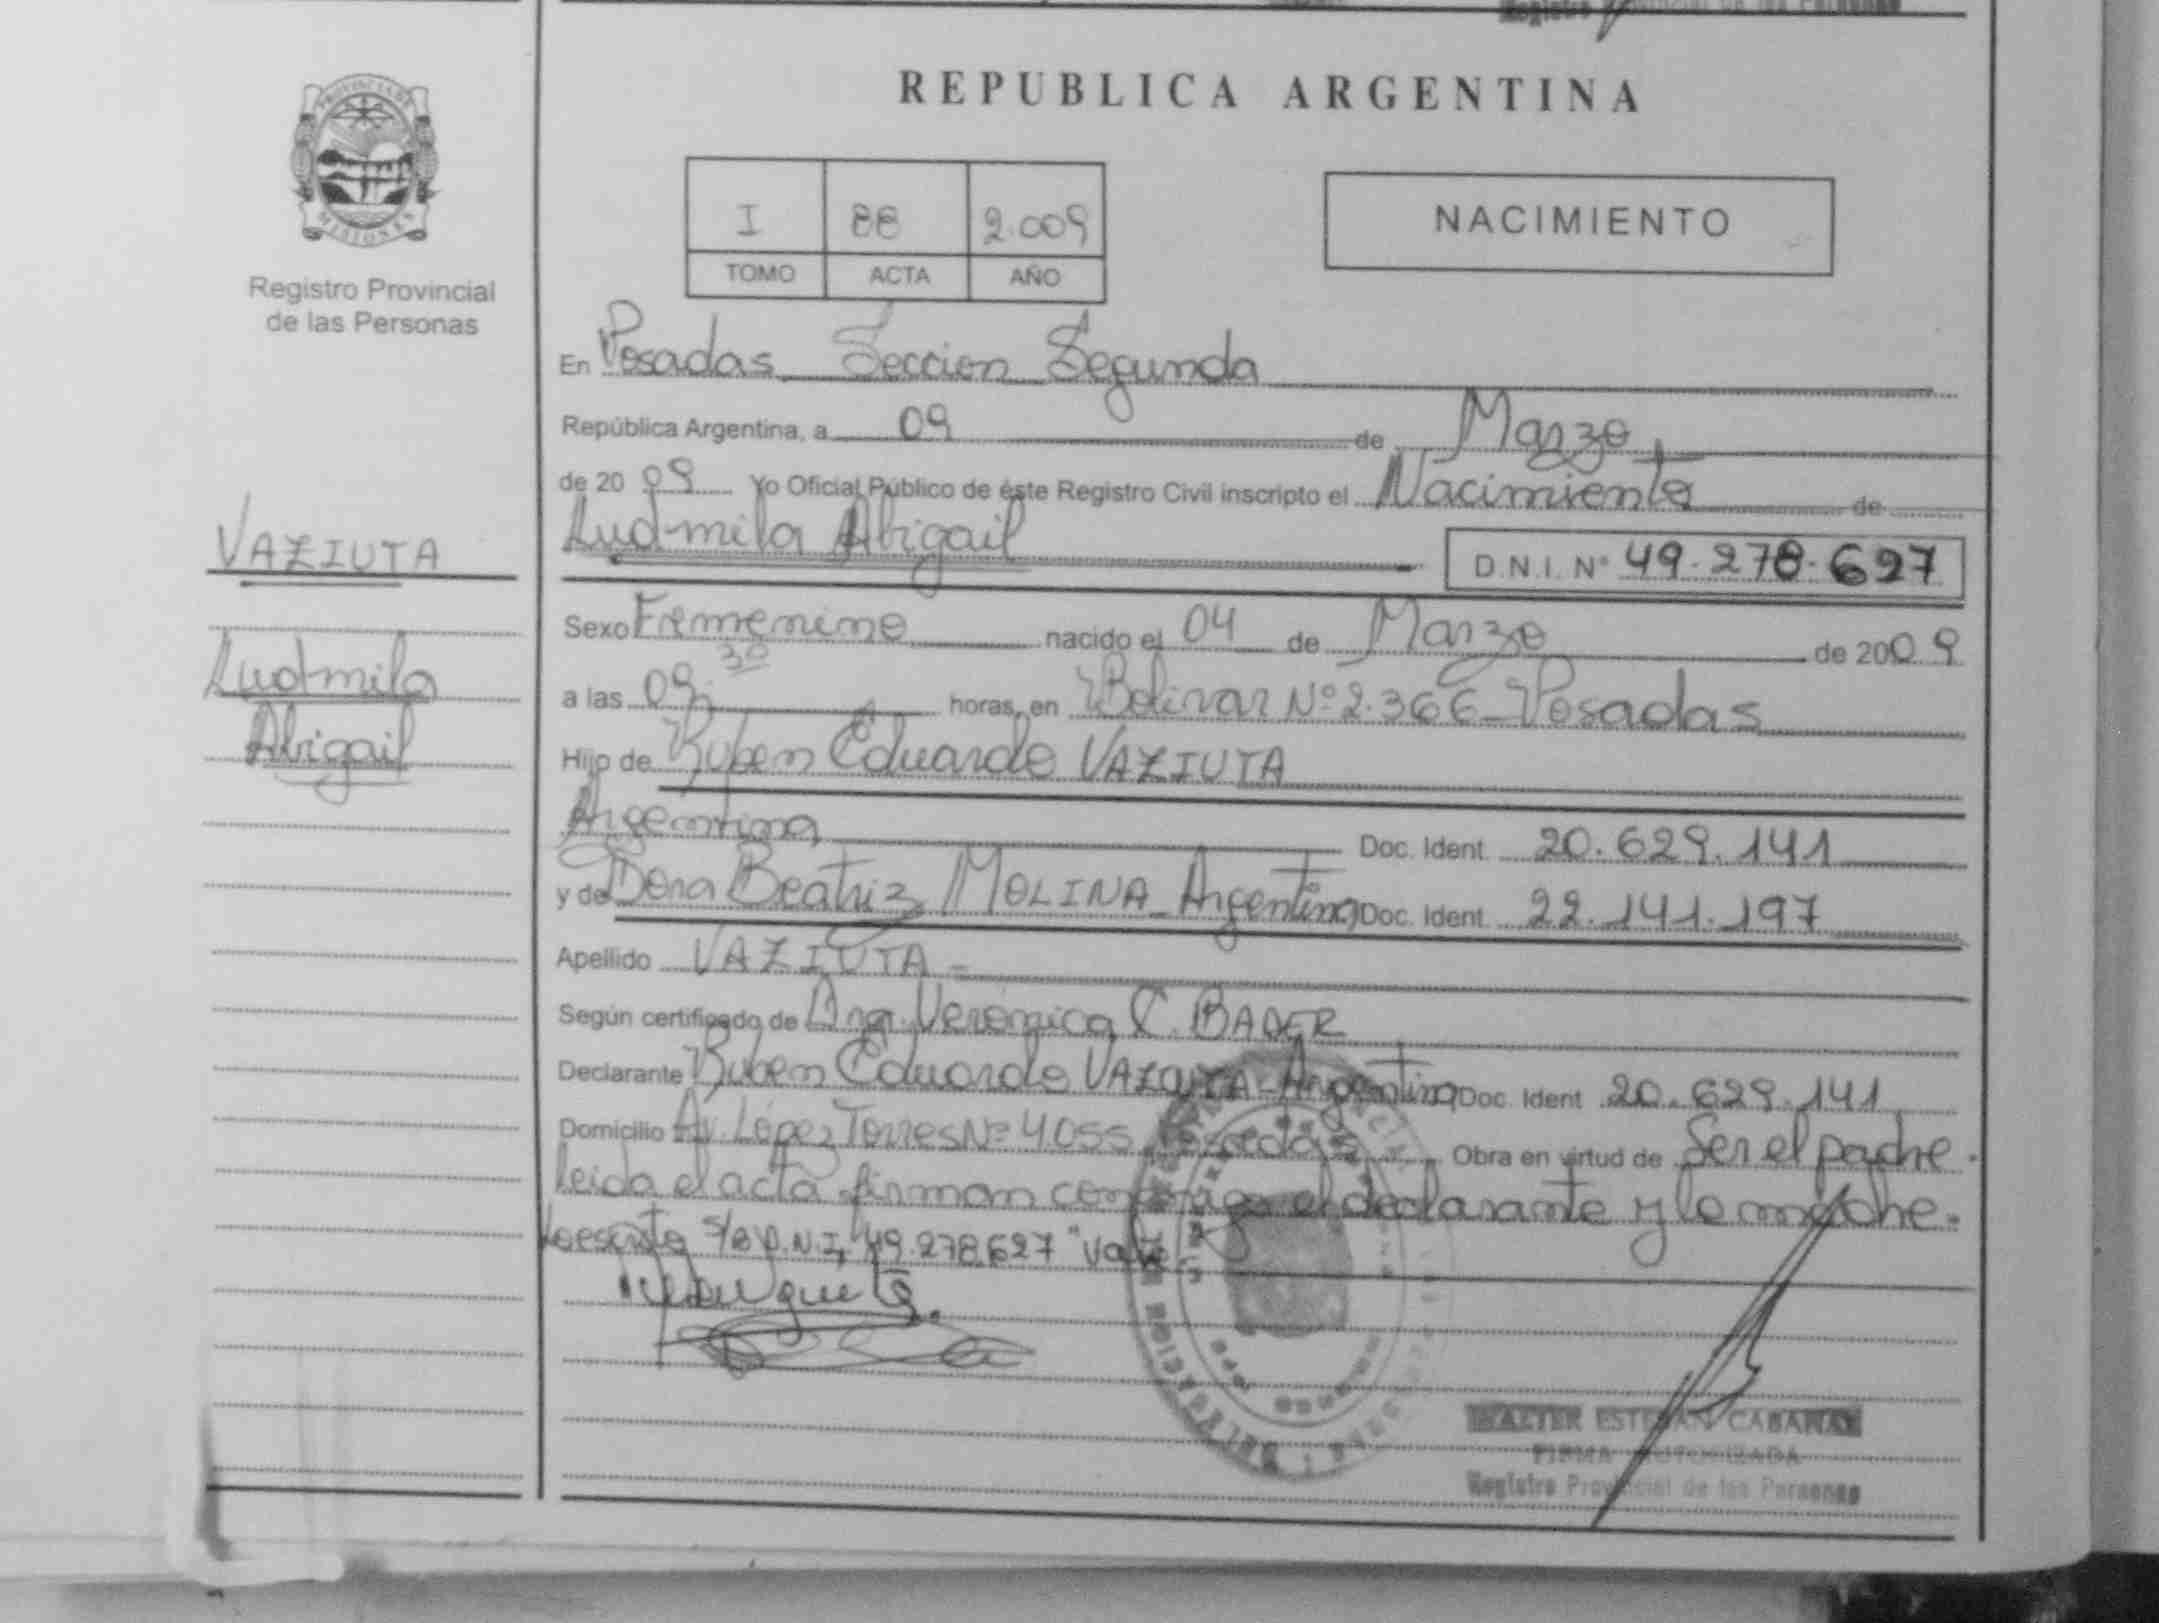 Registro Provincial de las Personas
REPUBLICA ARGENTINA
PROVINCIA DE
MISIONES
Registro Provincial
de las Personas
I 88 2.009
TOMO ACTA AÑO
NACIMIENTO
En Posadas Seccion Segunda
República Argentina, a 09 de Marzo
de 20 09 Yo Oficial Público de éste Registro Civil inscripto el Nacimiento de
Ludmila Abigail D.N.I. Nº 49.278.627
VAZIUTA
Ludmila
Abigail
Sexo Femenino nacido el 04 de Marzo de 2009
a las 09:30 horas, en Bolivar Nº 2.366 - Posadas
Hijo de Ruben Eduardo VAZIUTA
Argentina Doc. Ident. 20.629.141
y de Dora Beatriz MOLINA - Argentina Doc. Ident. 22.141.197
Apellido VAZIUTA -
Según certificado de Dra. Verónica C. BADER
Declarante Ruben Eduardo VAZIUTA - Argentina Doc. Ident. 20.629.141
Domicilio Av. López Torres Nº 4.055 Posadas Obra en virtud de Ser el padre.
leida el acta firman conmigo el declarante y la madre.
s/b D.N.I. 49.278.627 "Vale"
WALTER ESTEBAN
FIRMA AUTORIZADA
Registro Provincial de las Personas